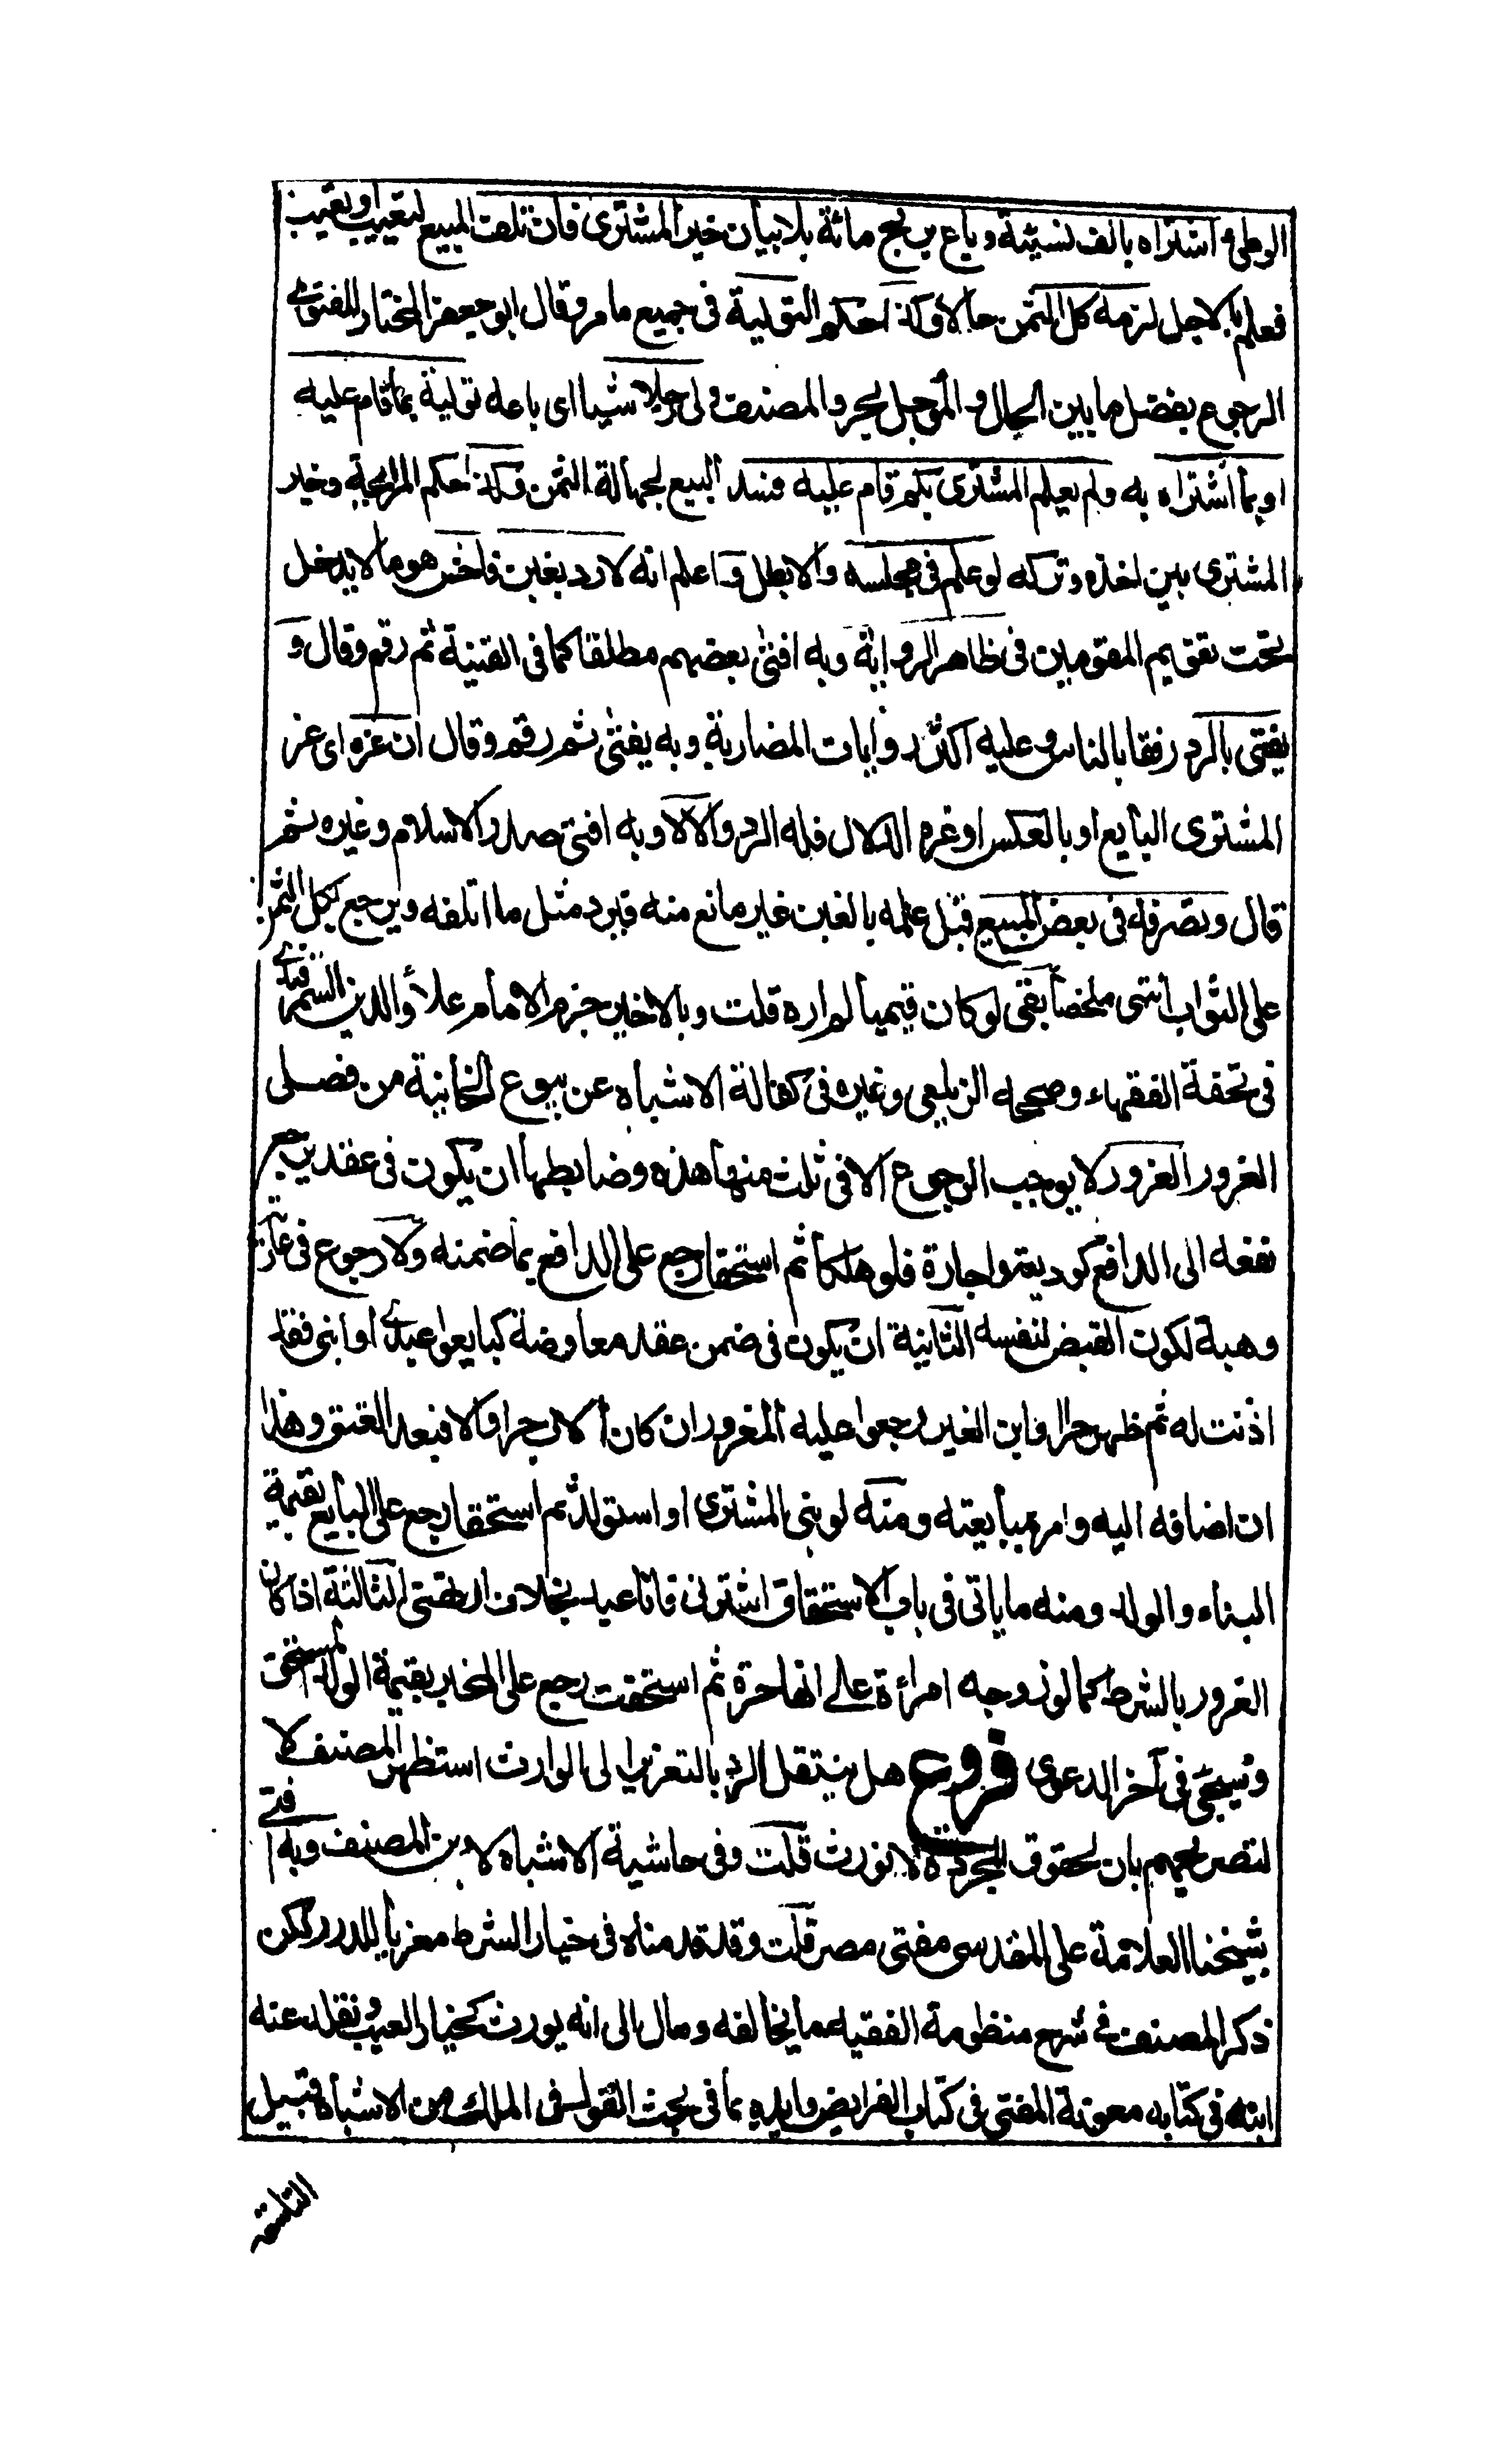 الوطئ اشتراه بالف نسيئة وباع بربح مائة بلا بيان خير المشترى فان تلف المبيع لتعيب او تعيب
فعلم بالاجل لزمه كل الثمن حالا وكذا حكم التولية فى جميع ما مر وقال ابو جعفر المختار للفتوى
الرجوع بفضل ما بين الحال والمؤجل بحر والمصنف ولى رجلا شيا اى باعه تولية بما قام عليه
او بما اشتراه به ولم يعلم المشترى بكم قام عليه فسد البيع لجهالة الثمن وكذا حكم المرابحة وخير
المشترى بين اخذه وتركه لو علم فى مجلسه والا بطل واعلم انه لا رد بغبن فاحش هو ما لا يدخل
تحت تقويم المقومين فى ظاهر الرواية وبه افتى بعضهم مطلقا كما فى القنية ثم رقم وقال و
يفتى بالرد رفقا بالناس وعليه اكثر روايات المضاربة وبه يفتى ثم رقم وقال ان غره اى غر
المشترى البايع او بالعكس او غره الدلال فله الرد والا لا وبه افتى صدر الاسلام وغيره ثم
قال وتصرفه فى بعض المبيع قبل علمه بالغبن غير مانع منه فيرد مثل ما اتلفه ويرجع بكل الثمن
على الثواب انتهى ملخصا بقى لو كان قيميا لم اره قلت وبالاخير جزم الامام علاؤ الدين السمرقندى
فى تحفة الفقهاء وصححه الزيلعى وغيره فى كفالة الاشباه عن بيوع الخانية من فصل
الغرور الغرور لا يوجب الرجوع الا فى ثلث منها هذه وضابطها ان يكون فى عقد يرجع
نفعه الى الدافع كوديعة واجارة فلو هلكا ثم استحقا رجع على الدافع بما ضمنه ولا رجوع فى عارية
وهبة لكون القبض لنفسه الثانية ان يكون فى ضمن عقد معاوضة كبايعوا عبدى او ابنى فقد
اذنت له ثم ظهر حرا او ابن الغير رجعوا عليه المغرور ان كان الاب حرا والا فبعد العتق وهذا
ان اضافه اليه وامر بمبايعته ومنه لو بنى المشترى او استولد ثم استحقا رجع على البايع بقيمة
البناء والولد ومنه ما ياتى فى باب الاستحقاق اشترنى فانا عبد بخلاف ارتهنى الثالثة اذا كان
الغرور بالشرط كما لو زوجه امرأة على انها حرة ثم استحقت رجع على المخبر بقيمة الولد المستحق
وسيجئ فى آخر الدعوى فروع هل ينتقل الرد بالتغرير الى الوارث استظهر المصنف لا
لتصريحهم بان الحقوق المجردة لا تورث قلت وفى حاشية الاشباه لابن المصنف وبه افتى
شيخنا العلامة على المقدسى مفتى مصر قلت وقد قدمناه فى خيار الشرط معزيا للدرر لكن
ذكر المصنف فى شرح منظومة الفقيه ما يخالفه ومال الى انه يورث كخيار العيب ونقله عنه
ابنه فى كتابه معونة المفتى فى كتاب الفرايض وايده بما فى بحث القول فى الملك من الاشباه قبيل